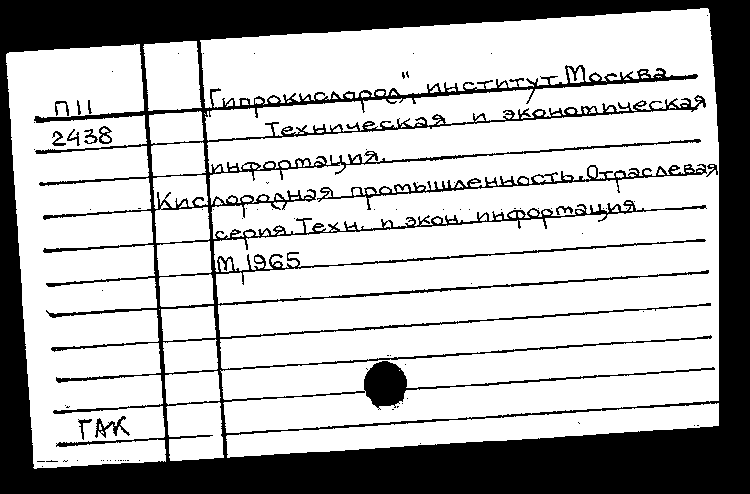 П11
2438
"Гипрокислород", институт. Москва.
Техническая и экономическая
информация.
Кислородная промышленность. Отраслевая
серия. Техн. и экон. информация.
М., 1965
ГАК